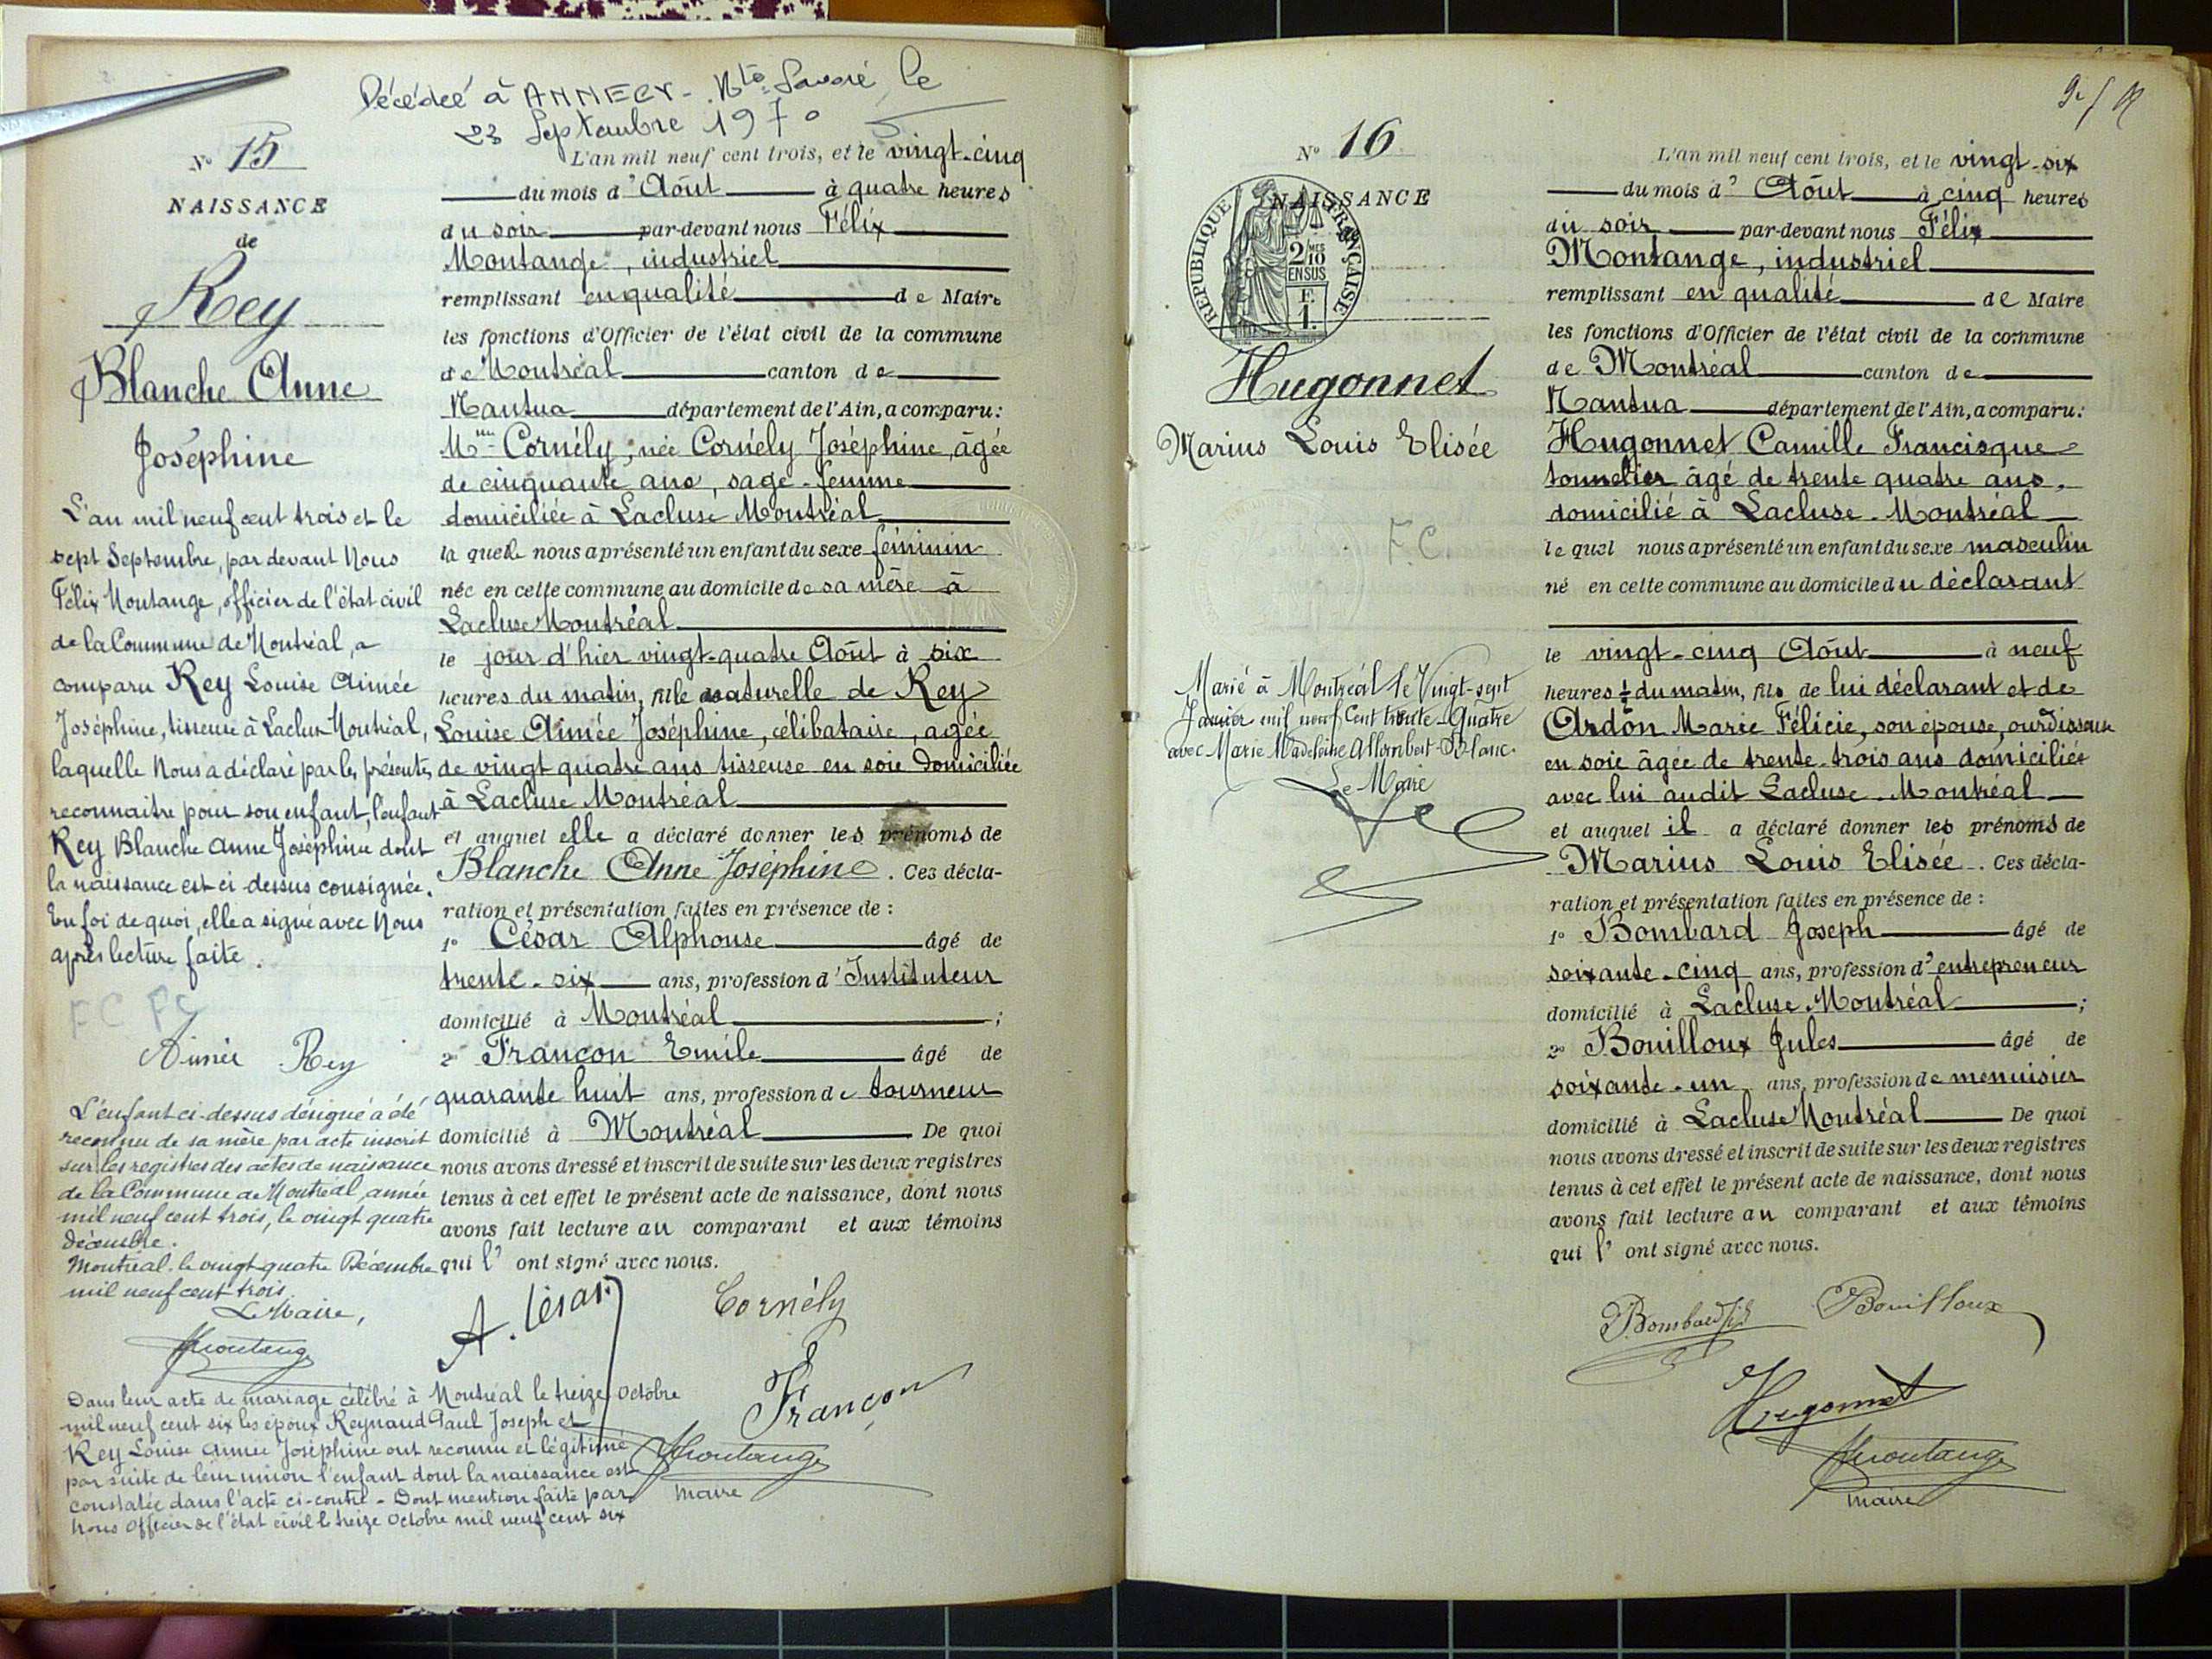 Décédée à ANNECY - Hte Savoie, le
23 Septembre 1970
No 15
NAISSANCE
de
Rey
Blanche Anne
Joséphine
L'an mil neuf cent trois et le
sept Septembre, par devant Nous
Félix Montange, officier de l'état civil
de la Commune de Montréal, a
comparu Rey Louise Aimée
Joséphine, tisseuse à Lacluse Montréal,
laquelle Nous a déclaré par les présentes
reconnaitre pour son enfant, l'enfant
Rey Blanche Anne Joséphine dont
la naissance est ci-dessus consignée.
En foi de quoi, elle a signé avec Nous
après lecture faite.
FC FC
Aimée Rey
L'enfant ci-dessus désigné a été
reconnu de sa mère par acte inscrit
sur les registres des actes de naissance
de la Commune de Montréal, année
mil neuf cent trois, le vingt quatre
Décembre.
Montréal, le vingt quatre Décembre
mil neuf cent trois.
Le Maire,
Montange
L'an mil neuf cent trois, et le vingt-cinq
du mois d'Août à quatre heures
du soir par-devant nous Félix
Montange, industriel
remplissant en qualité de Maire
les fonctions d'Officier de l'état civil de la commune
de Montréal canton de
Nantua département de l'Ain, a comparu:
Mme Cornély, née Cornély Joséphine, âgée
de cinquante ans, sage-femme
domiciliée à Lacluse Montréal
la quelle nous a présenté un enfant du sexe féminin
née en cette commune au domicile de sa mère à
Lacluse Montréal
le jour d'hier vingt-quatre Août à six
heures du matin, fille naturelle de Rey
Louise Aimée Joséphine, célibataire, agée
de vingt quatre ans tisseuse en soie domiciliée
à Lacluse Montréal
et auquel elle a déclaré donner les prénoms de
Blanche Anne Joséphine. Ces décla-
ration et présentation faites en présence de :
1o César Alphonse âgé de
trente-six ans, profession d'Instituteur
domicilié à Montréal ;
2o Francon Emile âgé de
quarante huit ans, profession de tourneur
domicilié à Montréal De quoi
nous avons dressé et inscrit de suite sur les deux registres
tenus à cet effet le présent acte de naissance, dont nous
avons fait lecture au comparant et aux témoins
qui l'ont signé avec nous.
A. César
Cornély
Françon
Montange
Maire
Dans leur acte de mariage célébré à Montréal le treize Octobre
mil neuf cent six les époux Reynaud Paul Joseph et
Rey Louise Aimée Joséphine ont reconnu et légitimé
par suite de leur union l'enfant dont la naissance est
constatée dans l'acte ci-contre - Dont mention faite par
Nous Officier de l'état civil le treize Octobre mil neuf cent six
No 16
NAISSANCE
RÉPUBLIQUE FRANÇAISE
2/10
MES
EN SUS
F.
1.
Hugonnet
Marius Louis Elisée
F.C.
Marié à Montréal le Vingt-sept
Janvier mil neuf Cent trente-Quatre
avec Marie Madeleine Allombert-Blanc.
Le Maire
L'an mil neuf cent trois, et le vingt-six
du mois d'Août à cinq heures
du soir par-devant nous Félix
Montange, industriel
remplissant en qualité de Maire
les fonctions d'Officier de l'état civil de la commune
de Montréal canton de
Nantua département de l'Ain, a comparu:
Hugonnet Camille Francisque
tonnelier âgé de trente quatre ans,
domicilié à Lacluse-Montréal
le quel nous a présenté un enfant du sexe masculin
né en cette commune au domicile du déclarant
le vingt-cinq Août à neuf
heures ½ du matin, fils de lui déclarant et de
Ardon Marie Félicie, son épouse, ourdisseuse
en soie âgée de trente-trois ans domiciliée
avec lui audit Lacluse-Montréal
et auquel il a déclaré donner les prénoms de
Marius Louis Elisée. Ces décla-
ration et présentation faites en présence de :
1o Bombard Joseph âgé de
soixante-cinq ans, profession d'entrepreneur
domicilié à Lacluse-Montréal ;
2o Bouilloux Jules âgé de
soixante-un ans, profession de menuisier
domicilié à Lacluse Montréal De quoi
nous avons dressé et inscrit de suite sur les deux registres
tenus à cet effet le présent acte de naissance, dont nous
avons fait lecture au comparant et aux témoins
qui l'ont signé avec nous.
Bombard
Bouilloux
Hugonnet
Montange
Maire